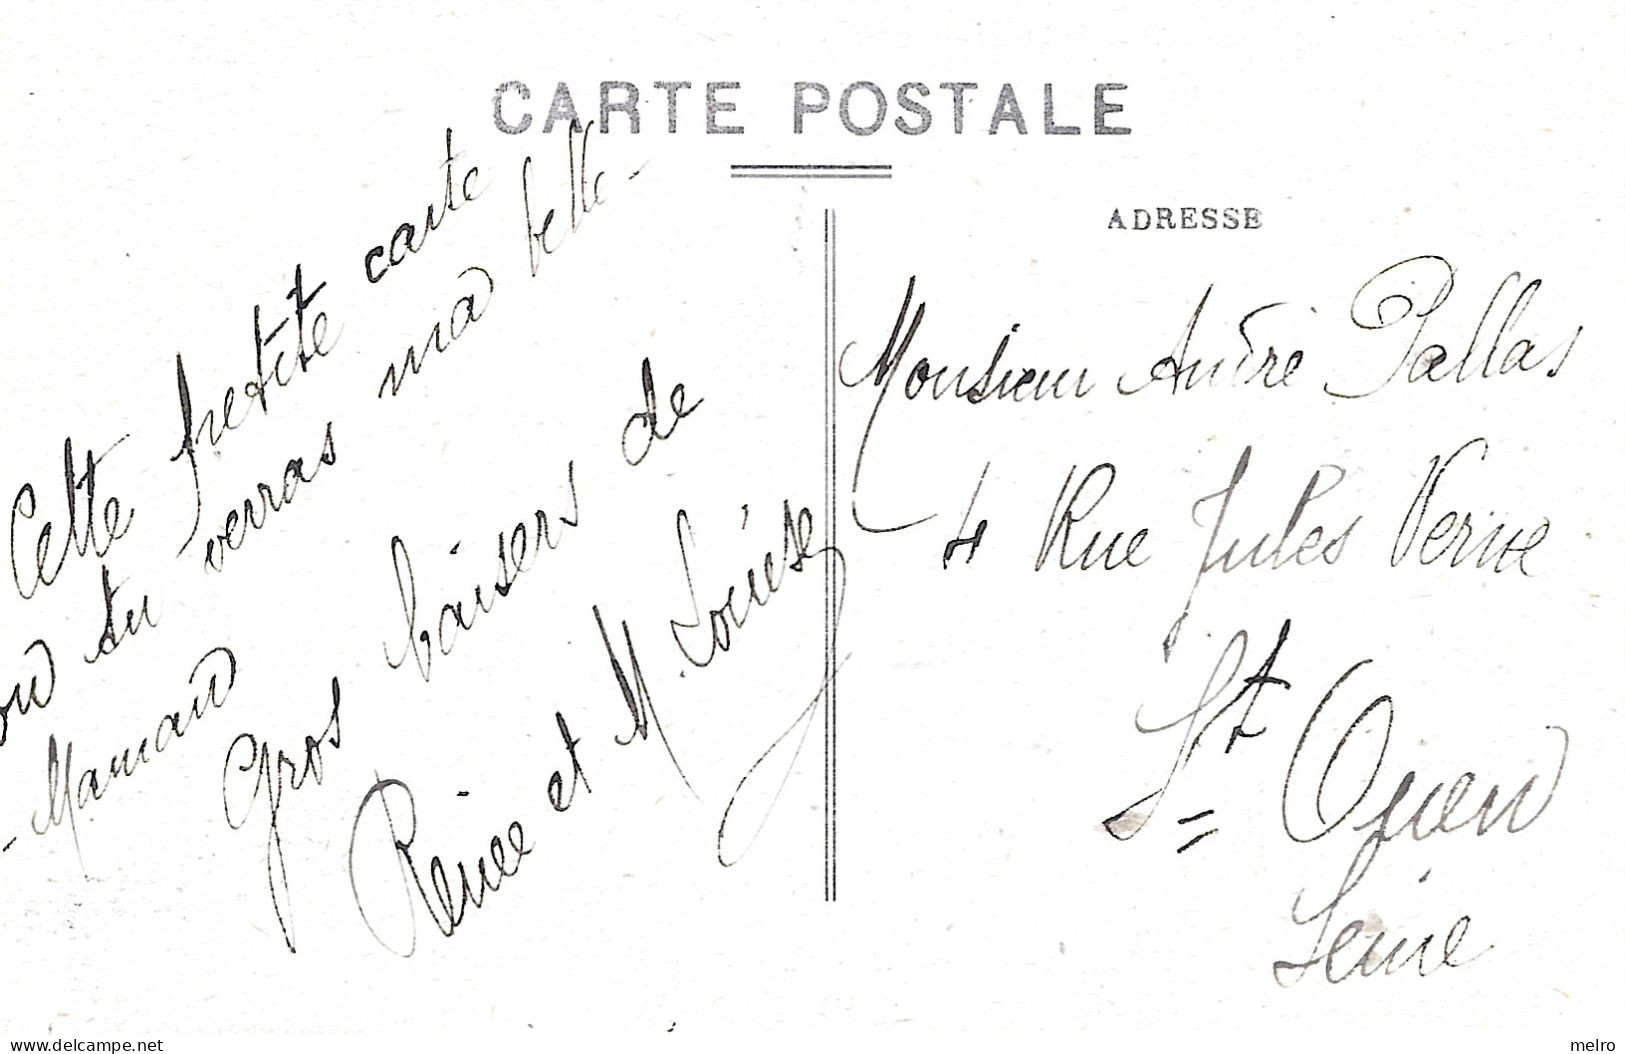 CARTE POSTALE
Cette petite carte
où tu verras ma belle-
-Maman
Gros baisers de
Renée et M. Louise
ADRESSE
Monsieur André Pallas
4 Rue Jules Verne
St= Ouen
Seine
delcampe.net
melro